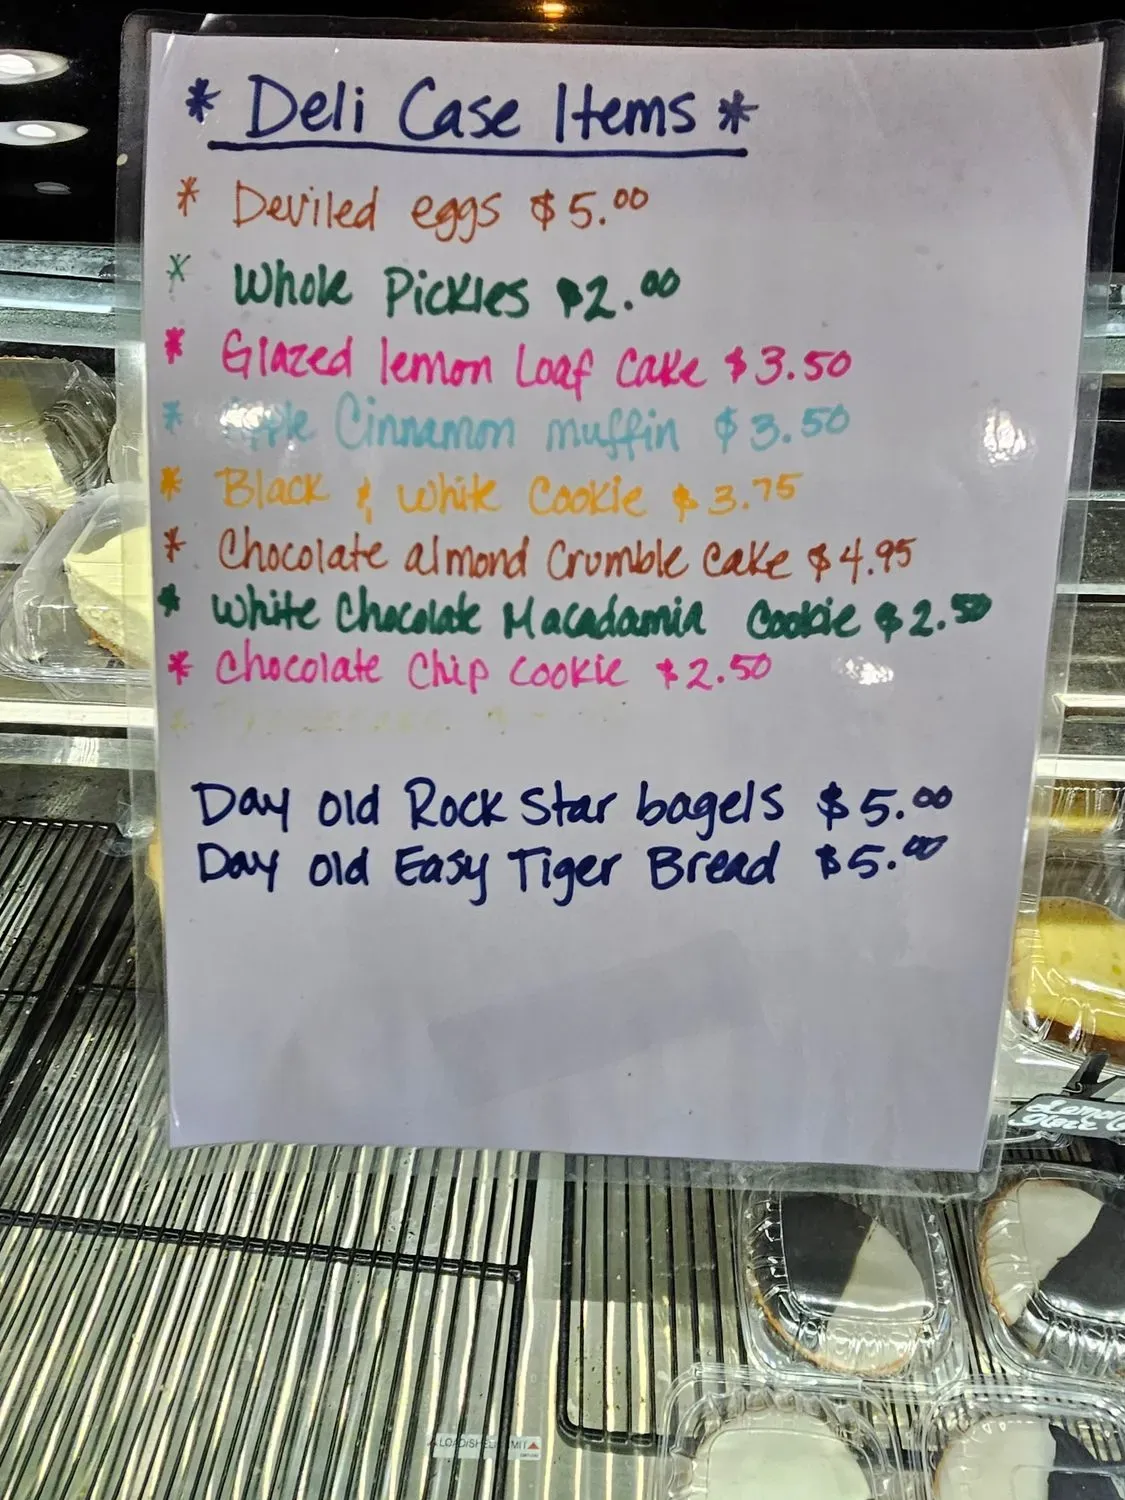 * Deli Case Items *
* Deviled eggs $5.00
* Whole Pickles $2.00
* Glazed lemon Loaf Cake $3.50
* Cinnamon muffin $3.50
* Black & White Cookie $3.75
* Chocolate almond Crumble Cake $4.95
* White Chocolate Macadamia Cookie $2.50
* Chocolate Chip Cookie $2.50
Day old Rock Star bagels $5.00
Day old Easy Tiger Bread $5.00